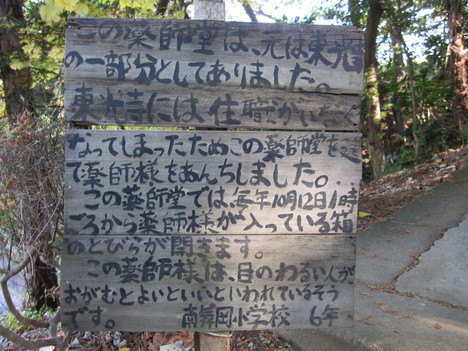 この薬師堂は、元は東光
の一部分としてありました。
東光寺には、住職がいなく
なってしまったためこの薬師堂を建
て薬師様をあんちしました。
この薬師堂では、毎年10月12日1時
ごろから薬師様が入っている箱
のとびらが開きます。
この薬師様は、目のわるい人が
おがむとよいといいといわれているそう
です。 南舞岡小学校 6年